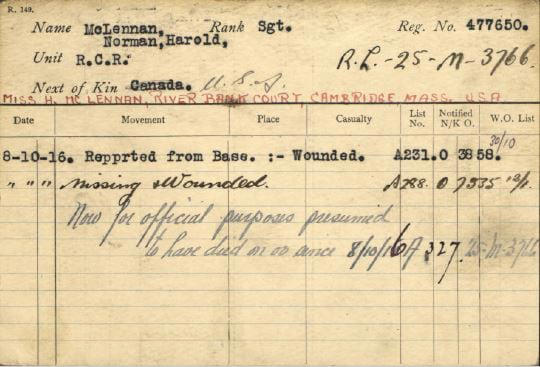 R. 149.
Name McLennan, Rank Sgt. Reg. No. 477650.
Norman, Harold,
Unit R.C.R. R.L.-25-M-3766.
Next of Kin Canada. U.S.A.
MISS H. MCLENNAN, RIVER BANK COURT, CAMBRIDGE, MASS. USA
Date Movement Place Casualty List No. Notified N/K O. W.O. List
30/10
8-10-16. Repprted from Base. :- Wounded. A231. 0 3858.
" " " Missing & Wounded. A288. 0 7535 12/1.
Now for official purposes presumed
to have died on or since 8/10/16 A 327. 25-M-3766